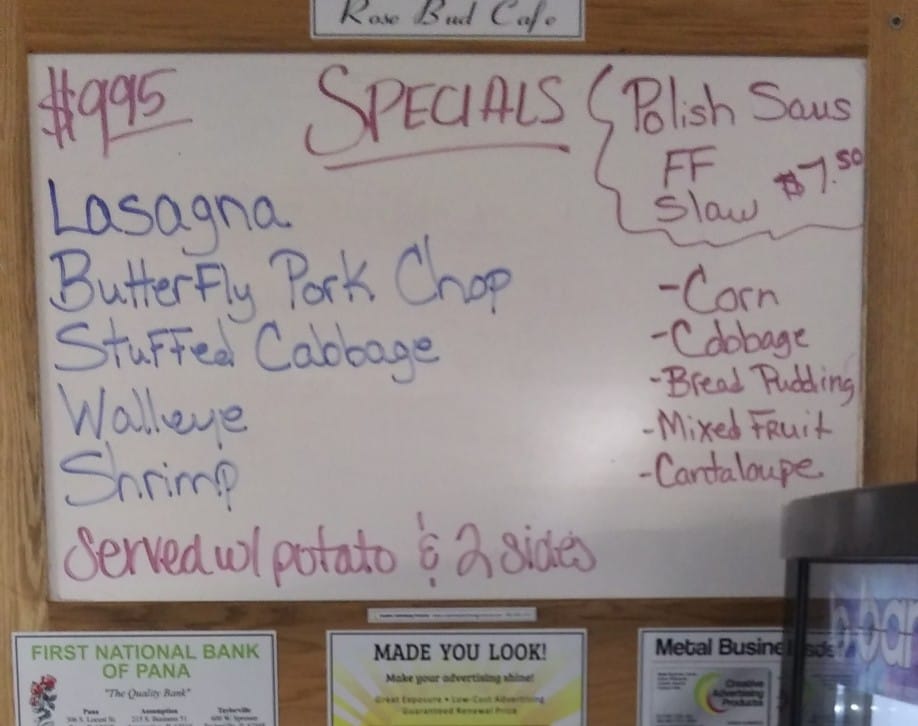 Rose Bud Cafe
$9.95
SPECIALS
Polish Saus
FF
Slaw $7.50
Lasagna
Butterfly Pork Chop
Stuffed Cabbage
Walleye
Shrimp
Served w/ potato & 2 sides
-Corn
-Cabbage
-Bread Pudding
-Mixed Fruit
-Cantaloupe
FIRST NATIONAL BANK
OF PANA
"The Quality Bank"
Pana Assumption Taylorville
MADE YOU LOOK!
Make your advertising shine!
Great Exposure • Low-Cost Advertising
Guaranteed Renewal Price
Metal Busine
Creative
Advertising
Products